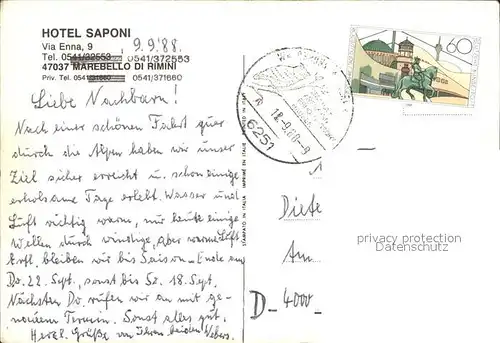 HOTEL SAPONI
Via Enna, 9
9.9.'88.
Tel. 0541/32553 0541/372553
47037 MAREBELLO DI RIMINI
Priv. Tel. 0541/31660 0541/371660
Liebe Nachbarn!
Nach einer schönen Fahrt quer
durch die Alpen haben wir unser
Ziel sicher erreicht u. schon einige
erholsame Tage erlebt. Wasser und
Luft richtig warm, nur heute einige
Wellen durch windige, aber warme Luft.
Evtl. bleiben wir bis Saison-Ende am
Do. 22. Sept., sonst bis So. 18. Sept.
Nächsten Do. rufen wir an mit ge-
nauem Termin. Sonst alles gut.
Herzl. Grüße von Ihren beiden Webers.
STAMPATO IN ITALIA IMPRIMÉ EN ITALIE PRINTED IN ITALY
6251
12.-9.88.-9
60
Diete
Am
D-4000
privacy protection
Datenschutz